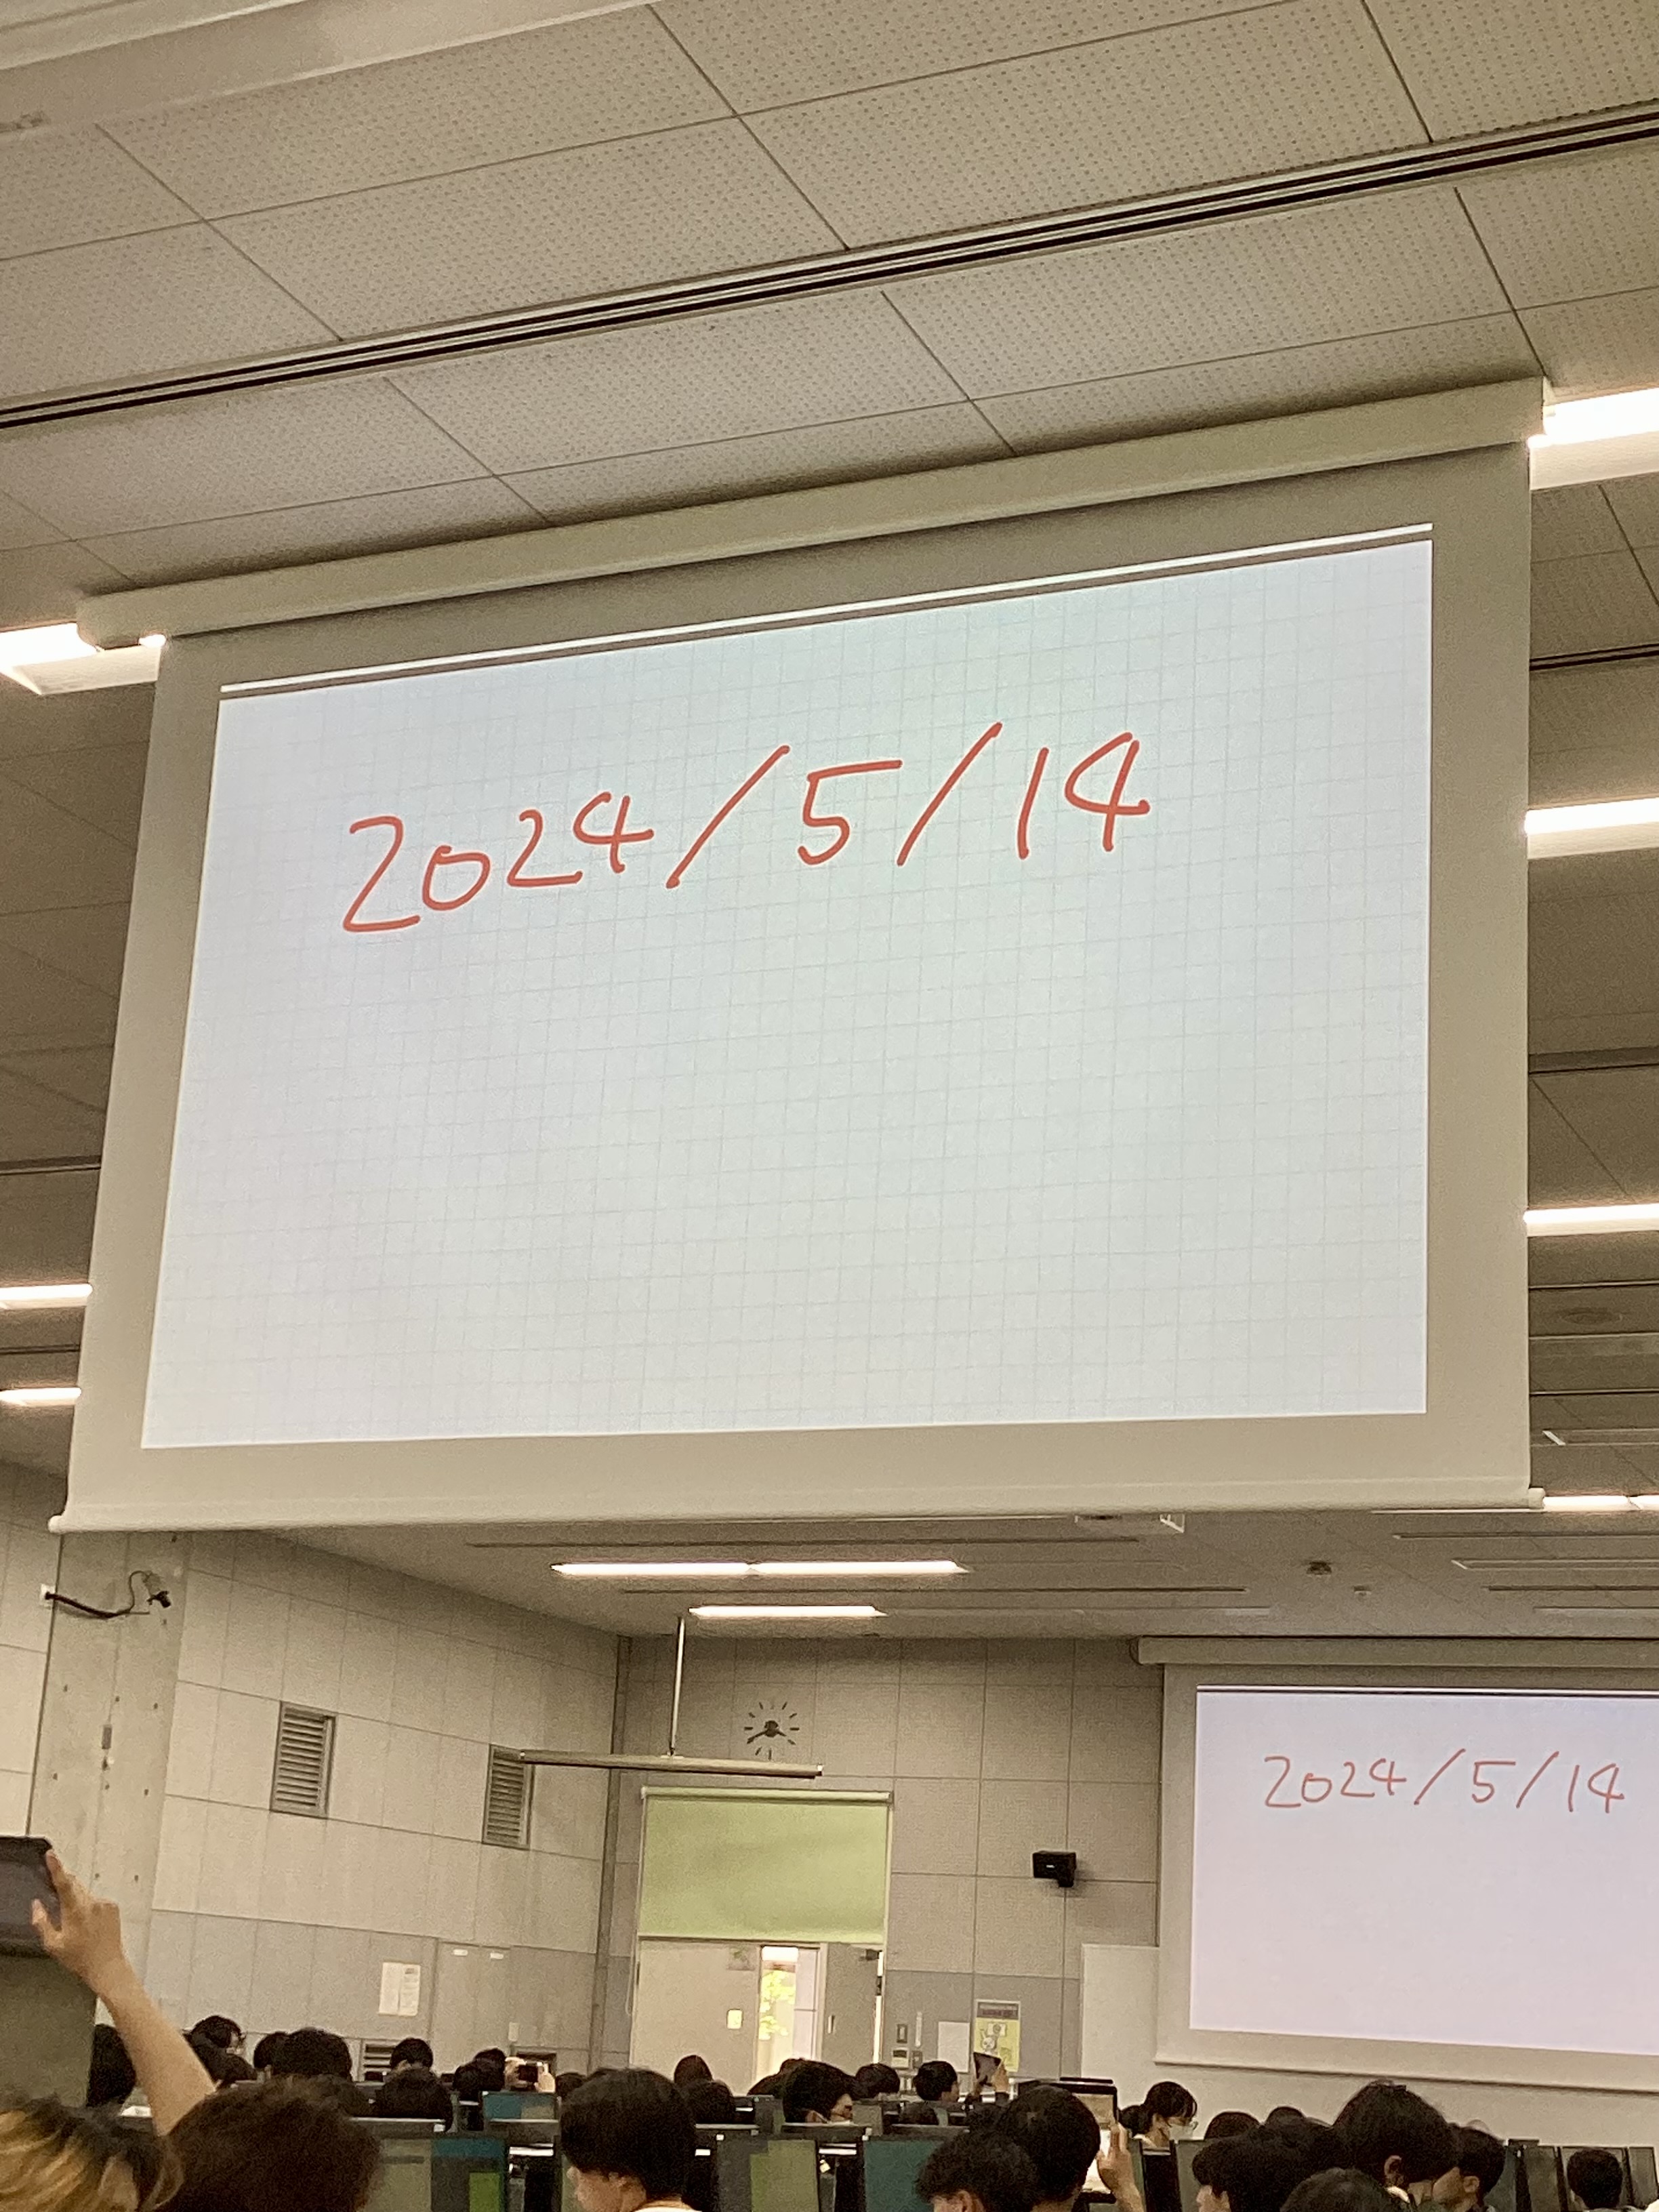 2024/5/14
2024/5/14